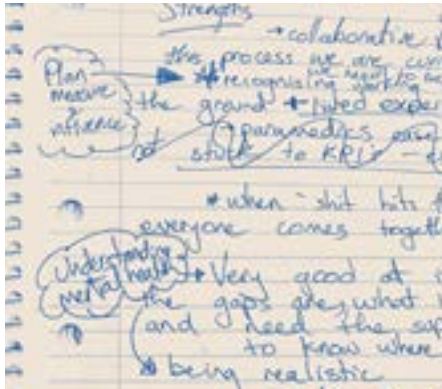 Strengths
→ collaborative
this process we are
we need to
Plan
measure
&
influence
* recognising working
the ground + lived exper
paramedics
stuck to KPI's
* when "shit hits
everyone comes togeth
Understanding
mental health
* Very good at
the gaps are, what
and need the su
to know where
* being realistic